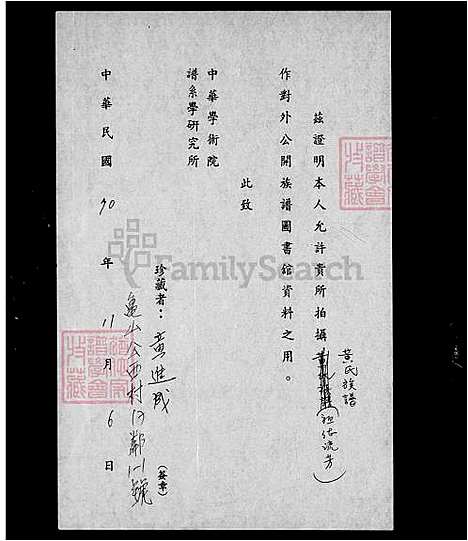 茲證明本人允許貴所拍攝黃氏族譜
作對外公開族譜圖書館資料之用。
此致
中華學術院
譜系學研究所
珍藏者：黃進成(簽章)
龜山公西村13鄰1-1號
中華民國70年11月6日
FamilySearch